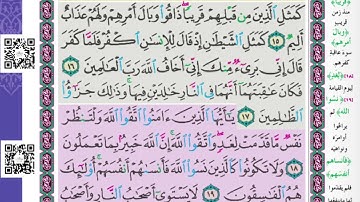 كَمَثَلِ ٱلَّذِينَ مِن قَبْلِهِمْ قَرِيبًا ذَاقُوا۟ وَبَالَ أَمْرِهِمْ وَلَهُمْ عَذَابٌ
أَلِيمٌ ١٥ كَمَثَلِ ٱلشَّيْطَٰنِ إِذْ قَالَ لِلْإِنسَٰنِ ٱكْفُرْ فَلَمَّا كَفَرَ
قَالَ إِنِّى بَرِىٓءٌ مِّنكَ إِنِّىٓ أَخَافُ ٱللَّهَ رَبَّ ٱلْعَٰلَمِينَ ١٦
فَكَانَ عَٰقِبَتَهُمَآ أَنَّهُمَا فِى ٱلنَّارِ خَٰلِدَيْنِ فِيهَا وَذَٰلِكَ جَزَٰٓؤُا۟
ٱلظَّٰلِمِينَ ١٧ يَٰٓأَيُّهَا ٱلَّذِينَ ءَامَنُوا۟ ٱتَّقُوا۟ ٱللَّهَ وَلْتَنظُرْ
نَفْسٌ مَّا قَدَّمَتْ لِغَدٍ وَٱتَّقُوا۟ ٱللَّهَ إِنَّ ٱللَّهَ خَبِيرٌۢ بِمَا تَعْمَلُونَ
١٨ وَلَا تَكُونُوا۟ كَٱلَّذِينَ نَسُوا۟ ٱللَّهَ فَأَنسَىٰهُمْ أَنفُسَهُمْ أُو۟لَٰٓئِكَ
هُمُ ٱلْفَٰسِقُونَ ١٩ لَا يَسْتَوِىٓ أَصْحَٰبُ ٱلنَّارِ وَأَصْحَٰبُ